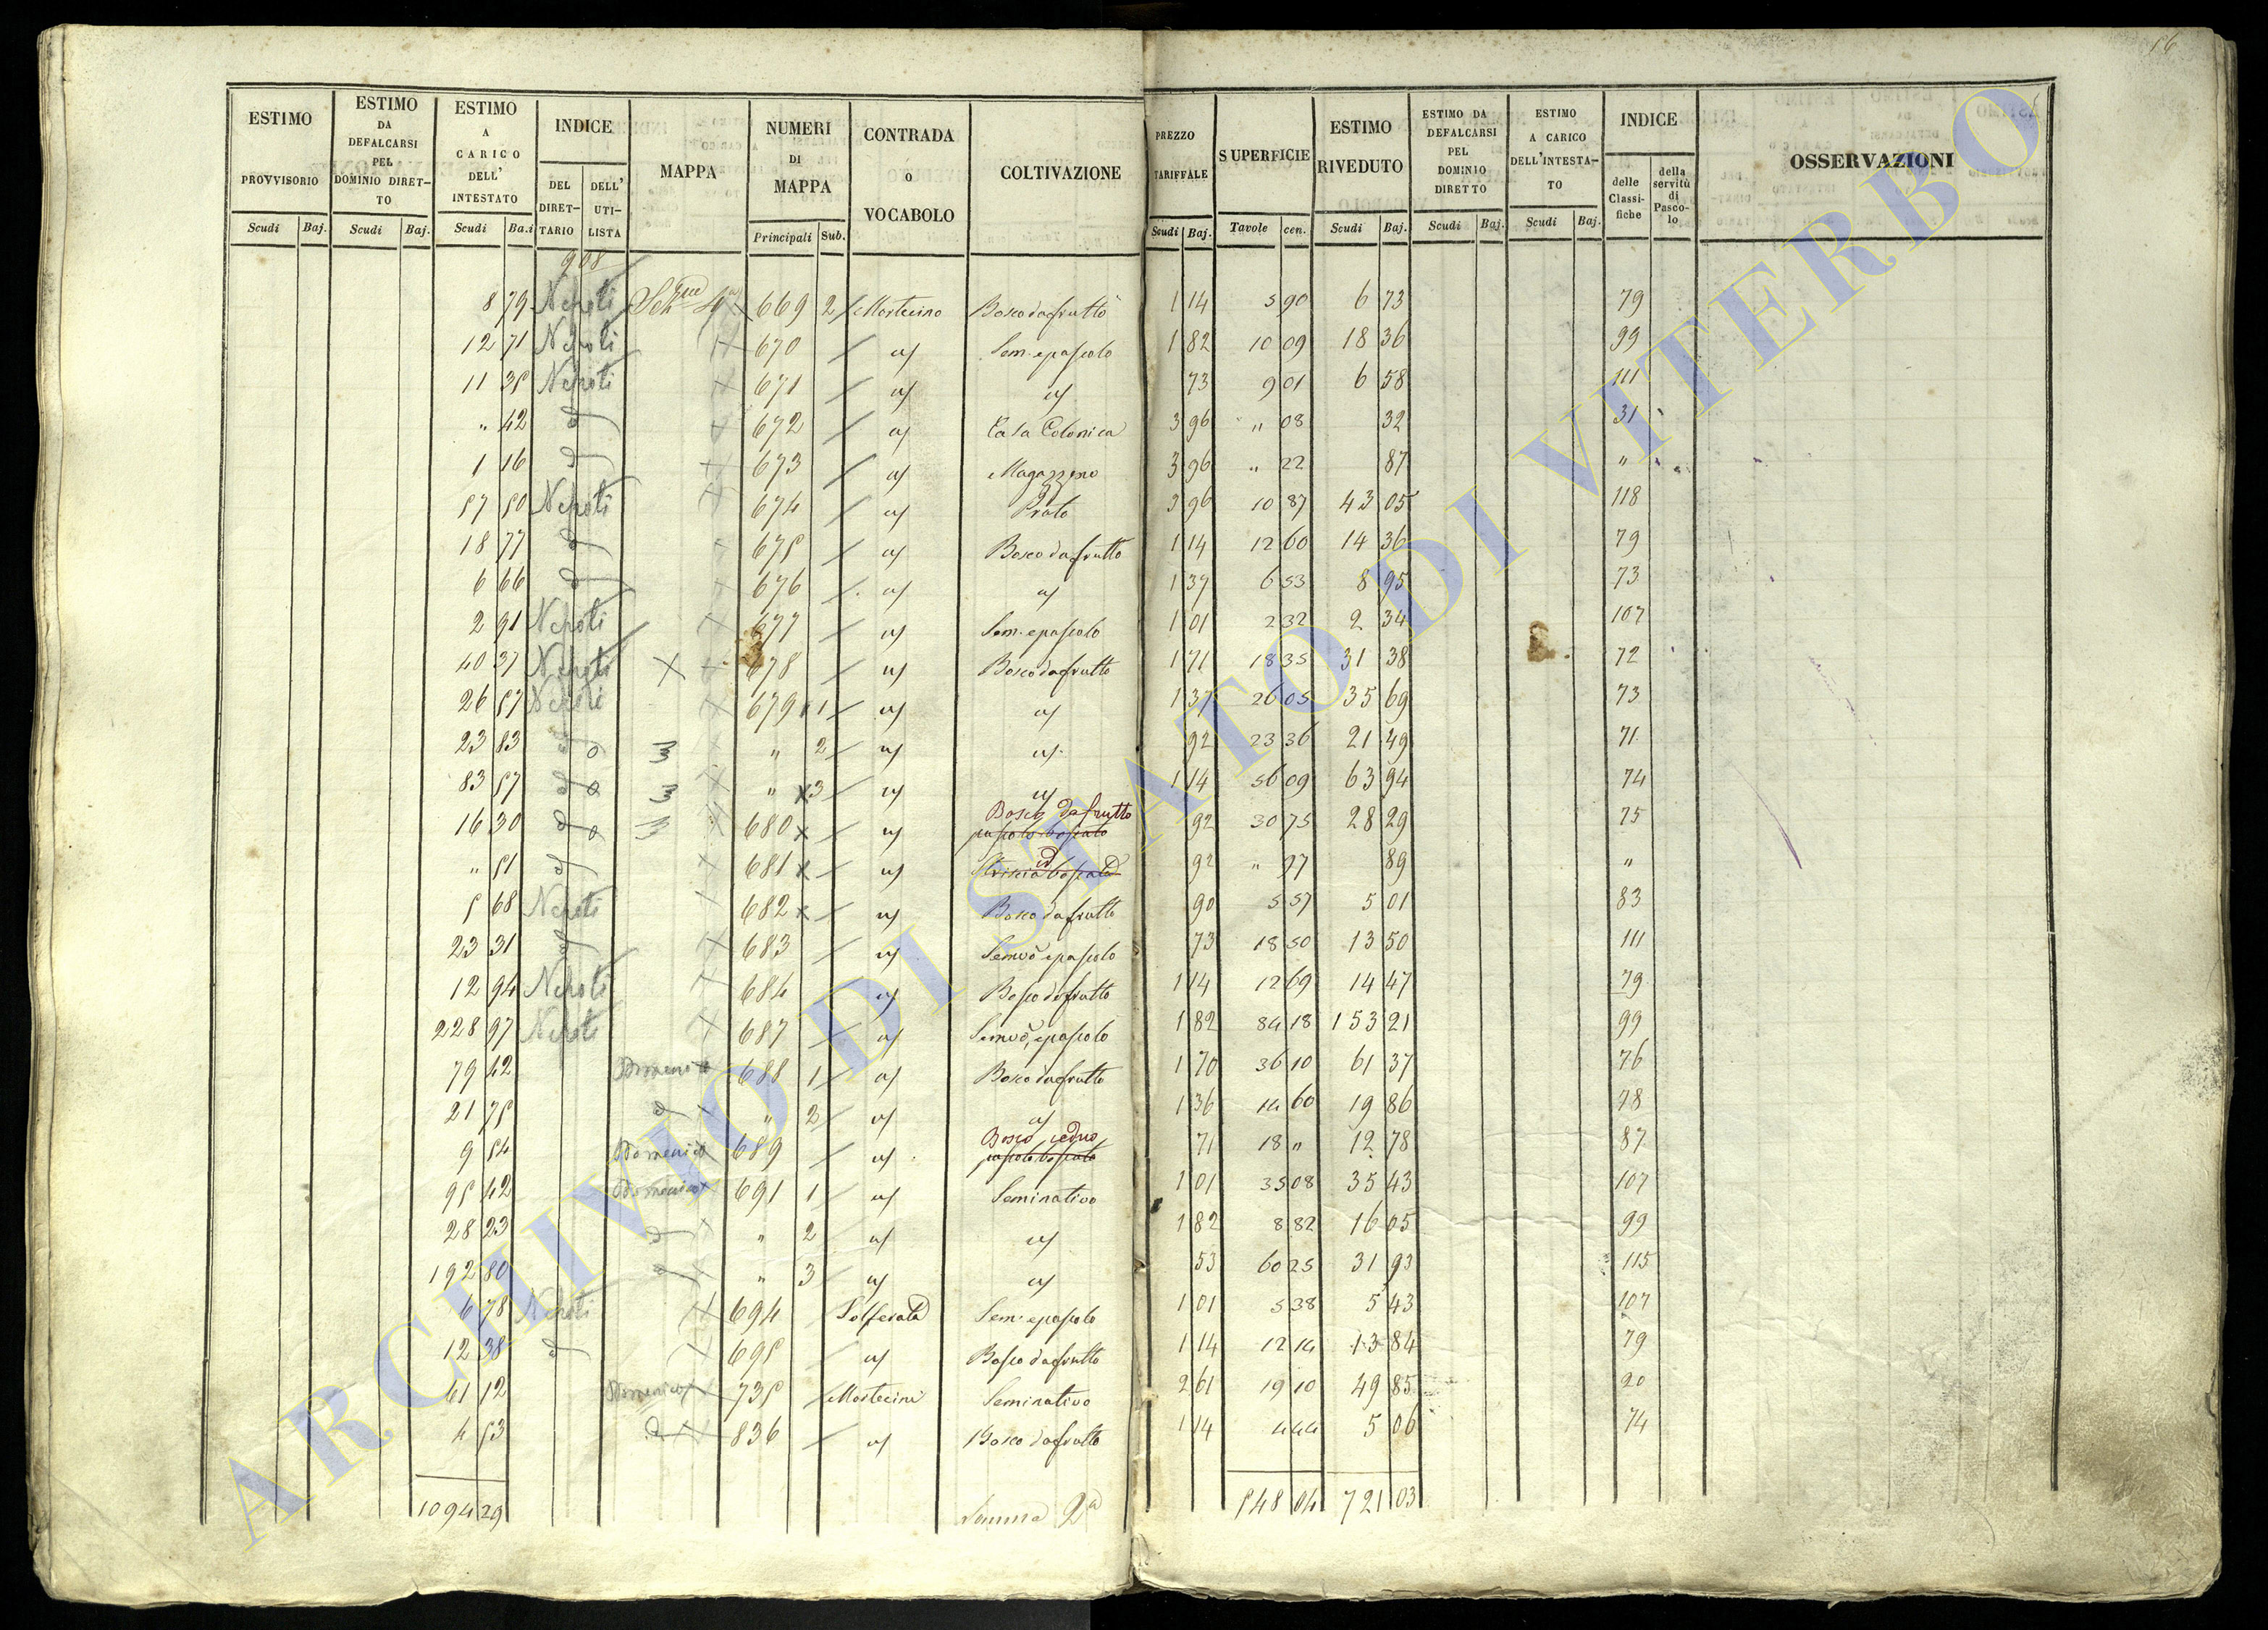 16
ESTIMO PROVVISORIO Scudi Baj.
ESTIMO DA DEFALCARSI PEL DOMINIO DIRET-TO Scudi Baj.
ESTIMO A CARICO DELL' INTESTATO Scudi Ba.i
INDICE DEL DIRET-TARIO DELL' UTI-LISTA
MAPPA
NUMERI DI MAPPA Principali Sub.
CONTRADA o VOCABOLO
COLTIVAZIONE
PREZZO TARIFFALE Scudi Baj.
SUPERFICIE Tavole cen.
ESTIMO RIVEDUTO Scudi Baj.
ESTIMO DA DEFALCARSI PEL DOMINIO DIRETTO Scudi Baj.
ESTIMO A CARICO DELL'INTESTA-TO Scudi Baj.
INDICE delle Classi-fiche della servitù di Pasco-lo
OSSERVAZIONI
908
8 79 Nepoti 669 2 Mortecino Bosco da frutto 1 14 5 90 6 73 79
12 71 Nepoti 670 " Sem. e pascolo 1 82 10 09 18 36 99
11 35 Nepoti 671 " " 73 9 01 6 58 111
" 42 d 672 " Casa Colonica 3 96 " 08 32 31
1 16 d 673 " Magazzeno 3 96 " 22 87 "
57 50 Nepoti 674 " Prato 3 96 10 87 43 05 118
18 77 d 675 " Bosco da frutto 1 14 12 60 14 36 79
6 66 d 676 " " 1 37 6 53 8 95 73
2 91 Nepoti 677 " Sem. e pascolo 1 01 2 32 2 34 107
40 37 Nepoti X 678 " Bosco da frutto 1 71 18 35 31 38 72
26 57 Nepoti 679 1 " " 1 37 26 05 35 69 73
23 83 " 2 " " 92 23 36 21 49 71
83 57 d " x3 " " 1 14 56 09 63 94 74
16 30 d 680 x " Bosco da frutto pascolo boscato 92 30 75 28 29 75
" 51 d 681 x " id 92 " 97 89 "
5 68 Nepoti 682 x " Bosco da frutto 90 5 57 5 01 83
23 31 d 683 " Semvo e pascolo 73 18 50 13 50 111
12 94 Nepoti 684 " Bosco da frutto 1 14 12 69 14 47 79
228 97 Nepoti 687 " Semvo, e pascolo 1 82 84 18 153 21 99
79 42 Domenico 688 1 " Bosco da frutto 1 70 36 10 61 37 76
21 75 d " 2 " " 1 36 14 60 19 86 78
9 54 Domenico 689 " Bosco ceduo pascolo boscato 71 18 " 12 78 87
95 42 Domenico 691 1 " Seminativo 1 01 35 08 35 43 107
28 23 d " 2 " " 1 82 8 82 16 05 99
192 80 d " 3 " " 53 60 25 31 93 115
6 78 Nepoti 694 Solferata Sem. e pascolo 1 01 5 38 5 43 107
12 38 d 695 " Bosco da frutto 1 14 12 14 13 84 79
41 12 Domenico 735 Mortecini Seminativo 2 61 19 10 49 85 20
4 53 d 836 " Bosco da frutto 1 14 4 44 5 06 74
1094 29 Somma 2a 548 04 721 03
ARCHIVIO DI STATO DI VITERBO